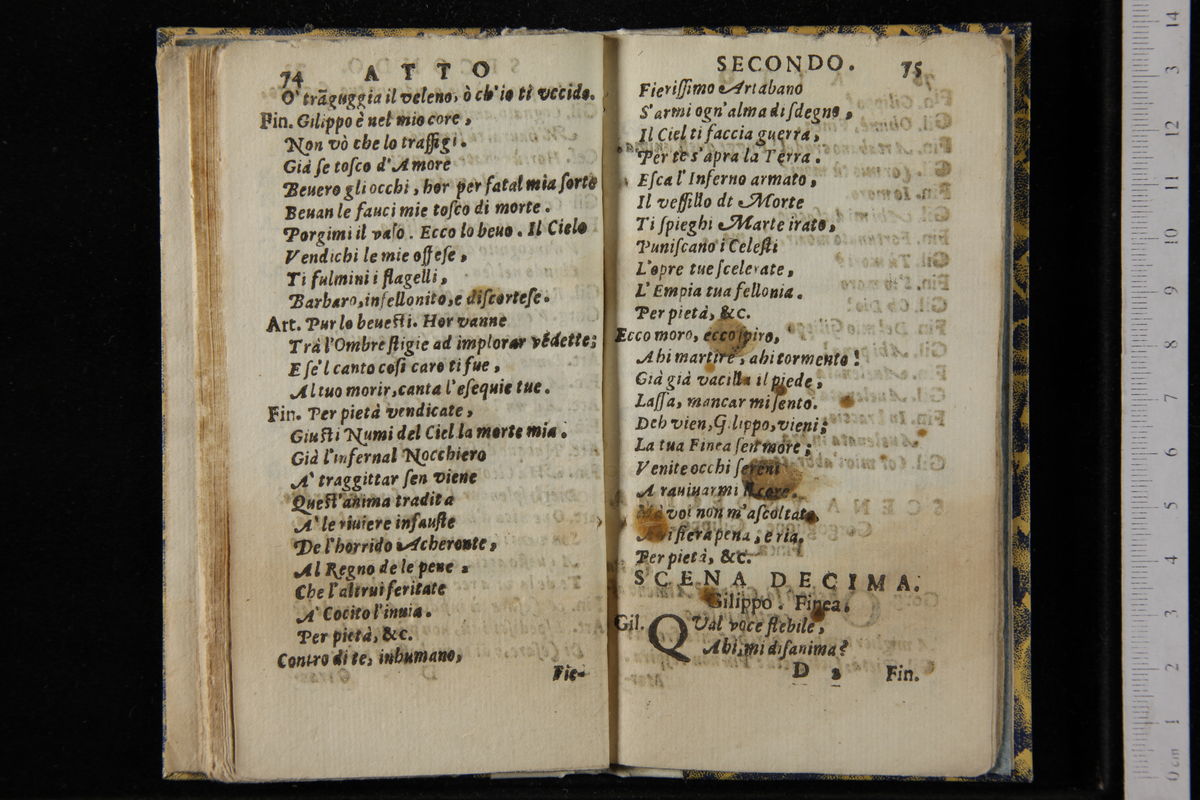 74 ATTO
O' trãguggia il veleno, ò ch'io ti vccido.
Fin. Gilippo è nel mio core,
Non vò che lo traffigi.
Già se tosco d'Amore
Beuero gli occhi, hor per fatal mia sorte
Beuan le fauci mie tosco di morte.
Porgimi il vaso. Ecco lo beuo. Il Cielo
Vendichi le mie offese,
Ti fulmini i flagelli,
Barbaro, infellonito, e discortese.
Art. Pur lo beuesti. Hor vanne
Trà l'Ombre stigie ad implorar vẽdette;
E se'l canto così caro ti fue,
Al tuo morir, canta l'esequie tue.
Fin. Per pietà vendicate,
Giusti Numi del Ciel la morte mia.
Già l'infernal Nocchiero
A' traggittar sen viene
Quest'anima tradita
A' le riuiere infauste
De l'horrido Acheronte,
Al Regno de le pene,
Che l'altrui feritate
A' Cocito l'inuia.
Per pietà, &c.
Contro di te, inhumano,
Fie-
SECONDO. 75
Fierissimo Artabano
S'armi ogn'alma di sdegno,
Il Ciel ti faccia guerra,
Per te s'apra la Terra.
Esca l'Inferno armato,
Il vessillo di Morte
Ti spieghi Marte irato,
Puniscano i Celesti
L'opre tue scelerate,
L'Empia tua fellonia.
Per pietà, &c.
Ecco moro, ecco spiro,
Ahi martire, ahi tormento!
Già già vacilla il piede,
Lassa, mancar mi sento.
Deh vien, Gilippo, vieni;
La tua Finea sen more;
Venite occhi sereni
A rauiuarmi il core.
Mà voi non m'ascoltate,
Ahi fiera pena, e ria.
Per pietà, &c.
SCENA DECIMA.
Gilippo. Finea.
Gil. QVal voce flebile,
Ahi, mi disanima?
D 2 Fin.